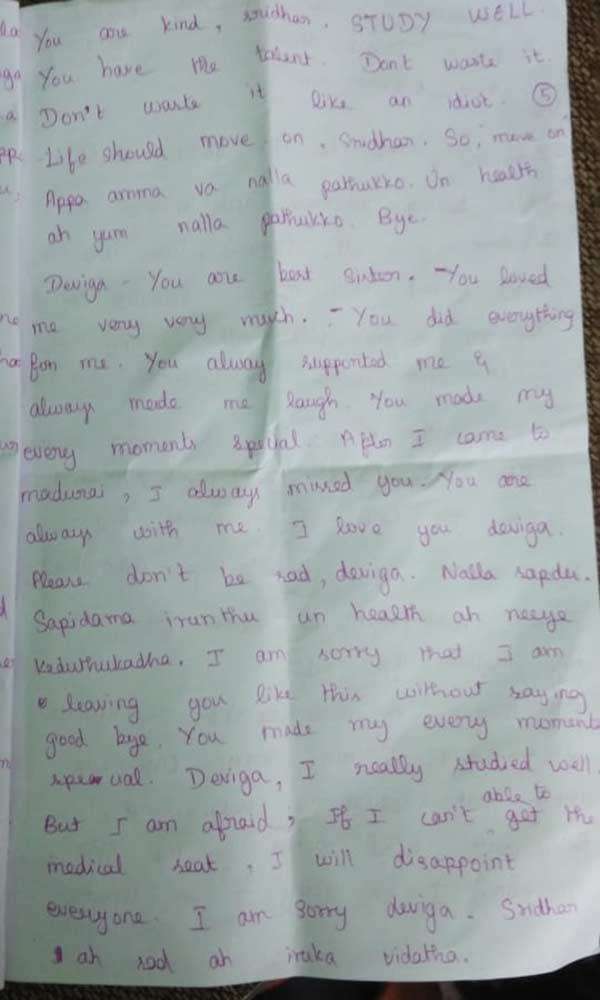 You are kind, sridhar. STUDY WELL.
You have the talent. Dont waste it.
Don't waste it like an idiot. 5
Life should move on, Sridhar. So, move on
Appa amma va nalla pathukko. Un health
ah yum nalla pathukko. Bye.
Deviga - You are best sister. - You loved
me very very much. - You did everything
for me. You alway supported me &
always made me laugh. You made my
every moments special. After I came to
madurai, I always missed you. You are
always with me. I love you deviga.
Please don't be sad, deviga. Nalla sapdu.
Sapidama irunthu un health ah neeye
keduthukadha. I am sorry that I am
leaving you like this without saying
good bye. You made my every moments
special. Deviga, I really studied well.
But I am afraid, If I can't able to get the
medical seat, I will disappoint
everyone. I am sorry deviga. Sridhar
ah sad ah iruka vidatha.